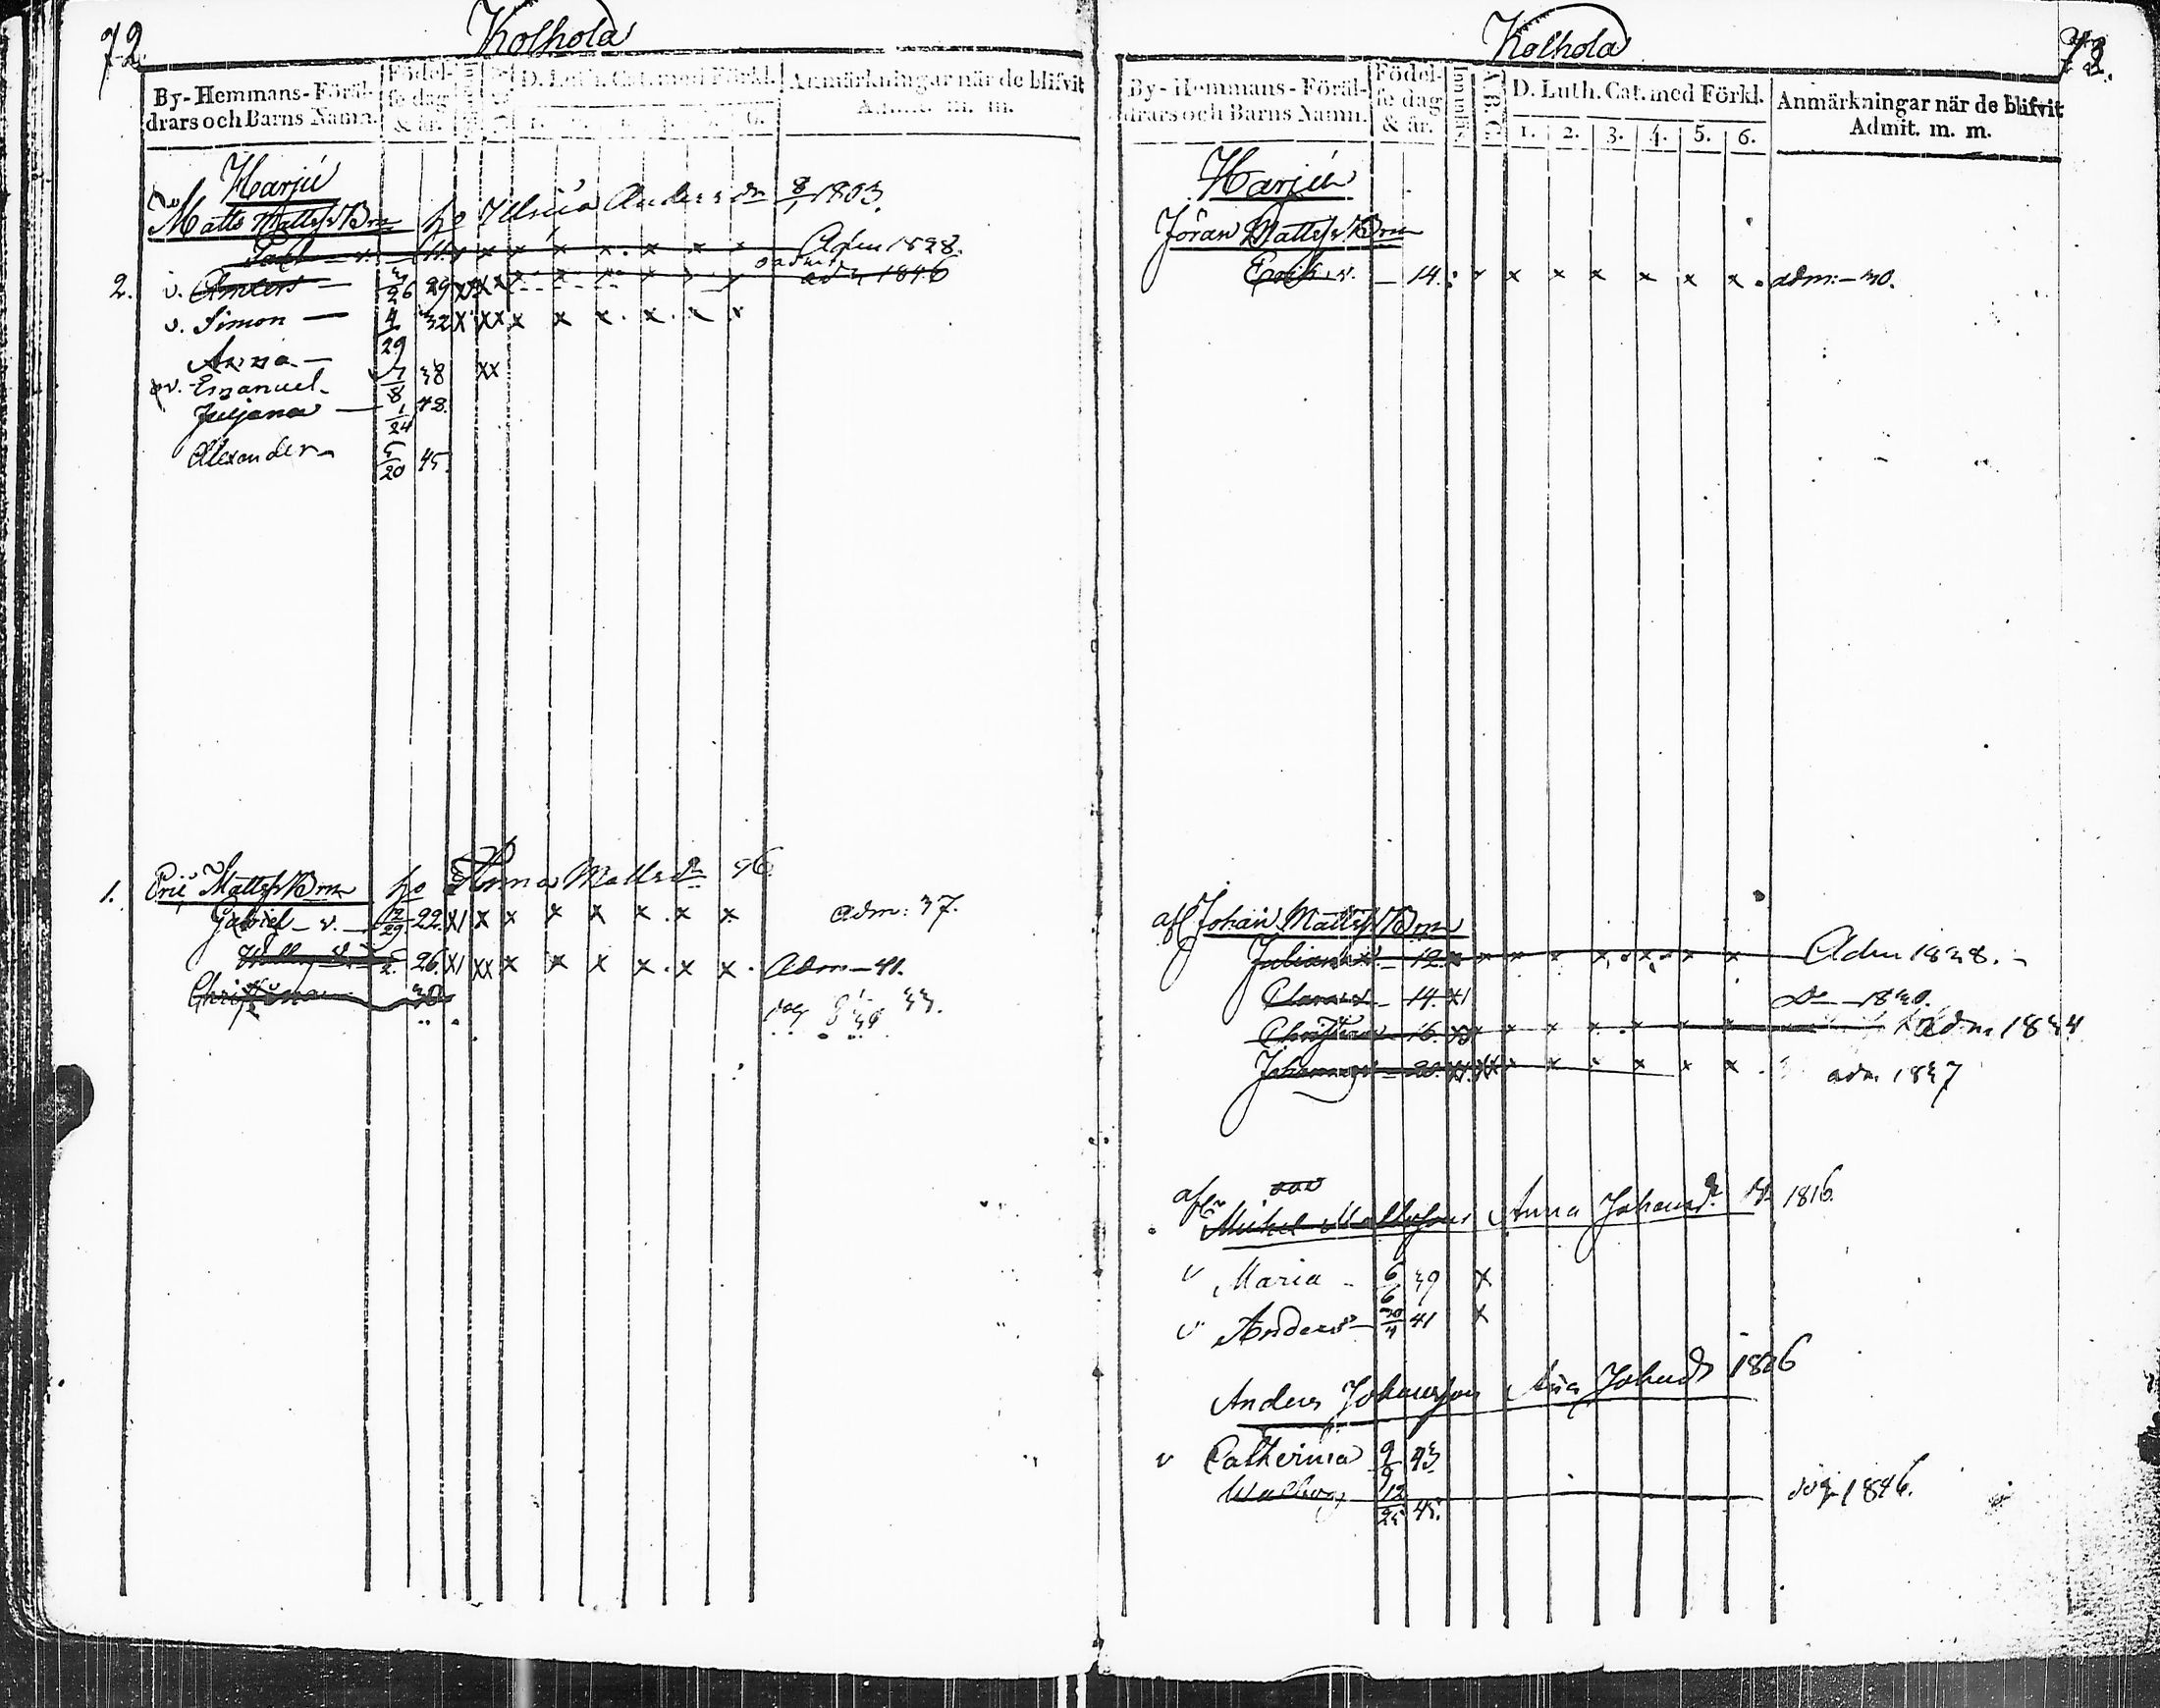 72.
Kolhola
By-Hemmans-Föräl-
drars och Barns Namn.
Födel-
se dag
& år.
D. Luth. Cat. med Förkl.
Anmärkningar när de blifvit
Admit. m. m.
6.
Harju
Matts Mattss Brn ho Ulrica Anders dr 8/1 1803.
Adm 1838.
2. v. Anders — 3/26 29 x x x x x x x adm 1846
v. Simon — 4/29 32 x xx x x x x x x
Anna —
v. Emanuel 7/8 38 xx
Juljana — 1/24 42.
Alexander 5/20 45.
1. Eric Mattss Brn ho Anna Matts dr 96
Gabriel v. — 12/29 22. x x x x x x x x adm: 37.
26. x xx x x x x x x Adm — 41.
Christina 30 33.
Kolhola
73.
By-Hemmans-Föräl-
drars och Barns Namn.
Födel-
se dag
& år.
Inn. mlks
A B C.
D. Luth. Cat. med Förkl.
1. 2. 3. 4. 5. 6.
Anmärkningar när de blifvit
Admit. m. m.
Harju
Jöran Mattss Brn
Erik v. — 14. x x x x x x x adm: — 30.
afl Johan Mattss Brn
Juliana — 12. x x x x x x x Adm 1828. —
Clara — 14. x Do — 1830.
Christina — 16. x x x x x x x adm 1834
Johannes — 20. x x x x x x x adm 1837
afl
Michel Mattsson Anna Johansdr 1816.
v Maria — 6/6 39 x
v Anders — 41 x
Anders Johansson Johansdr 1826
v Catherina 9/9 43
Walborg 12/25 45. dög 1846.